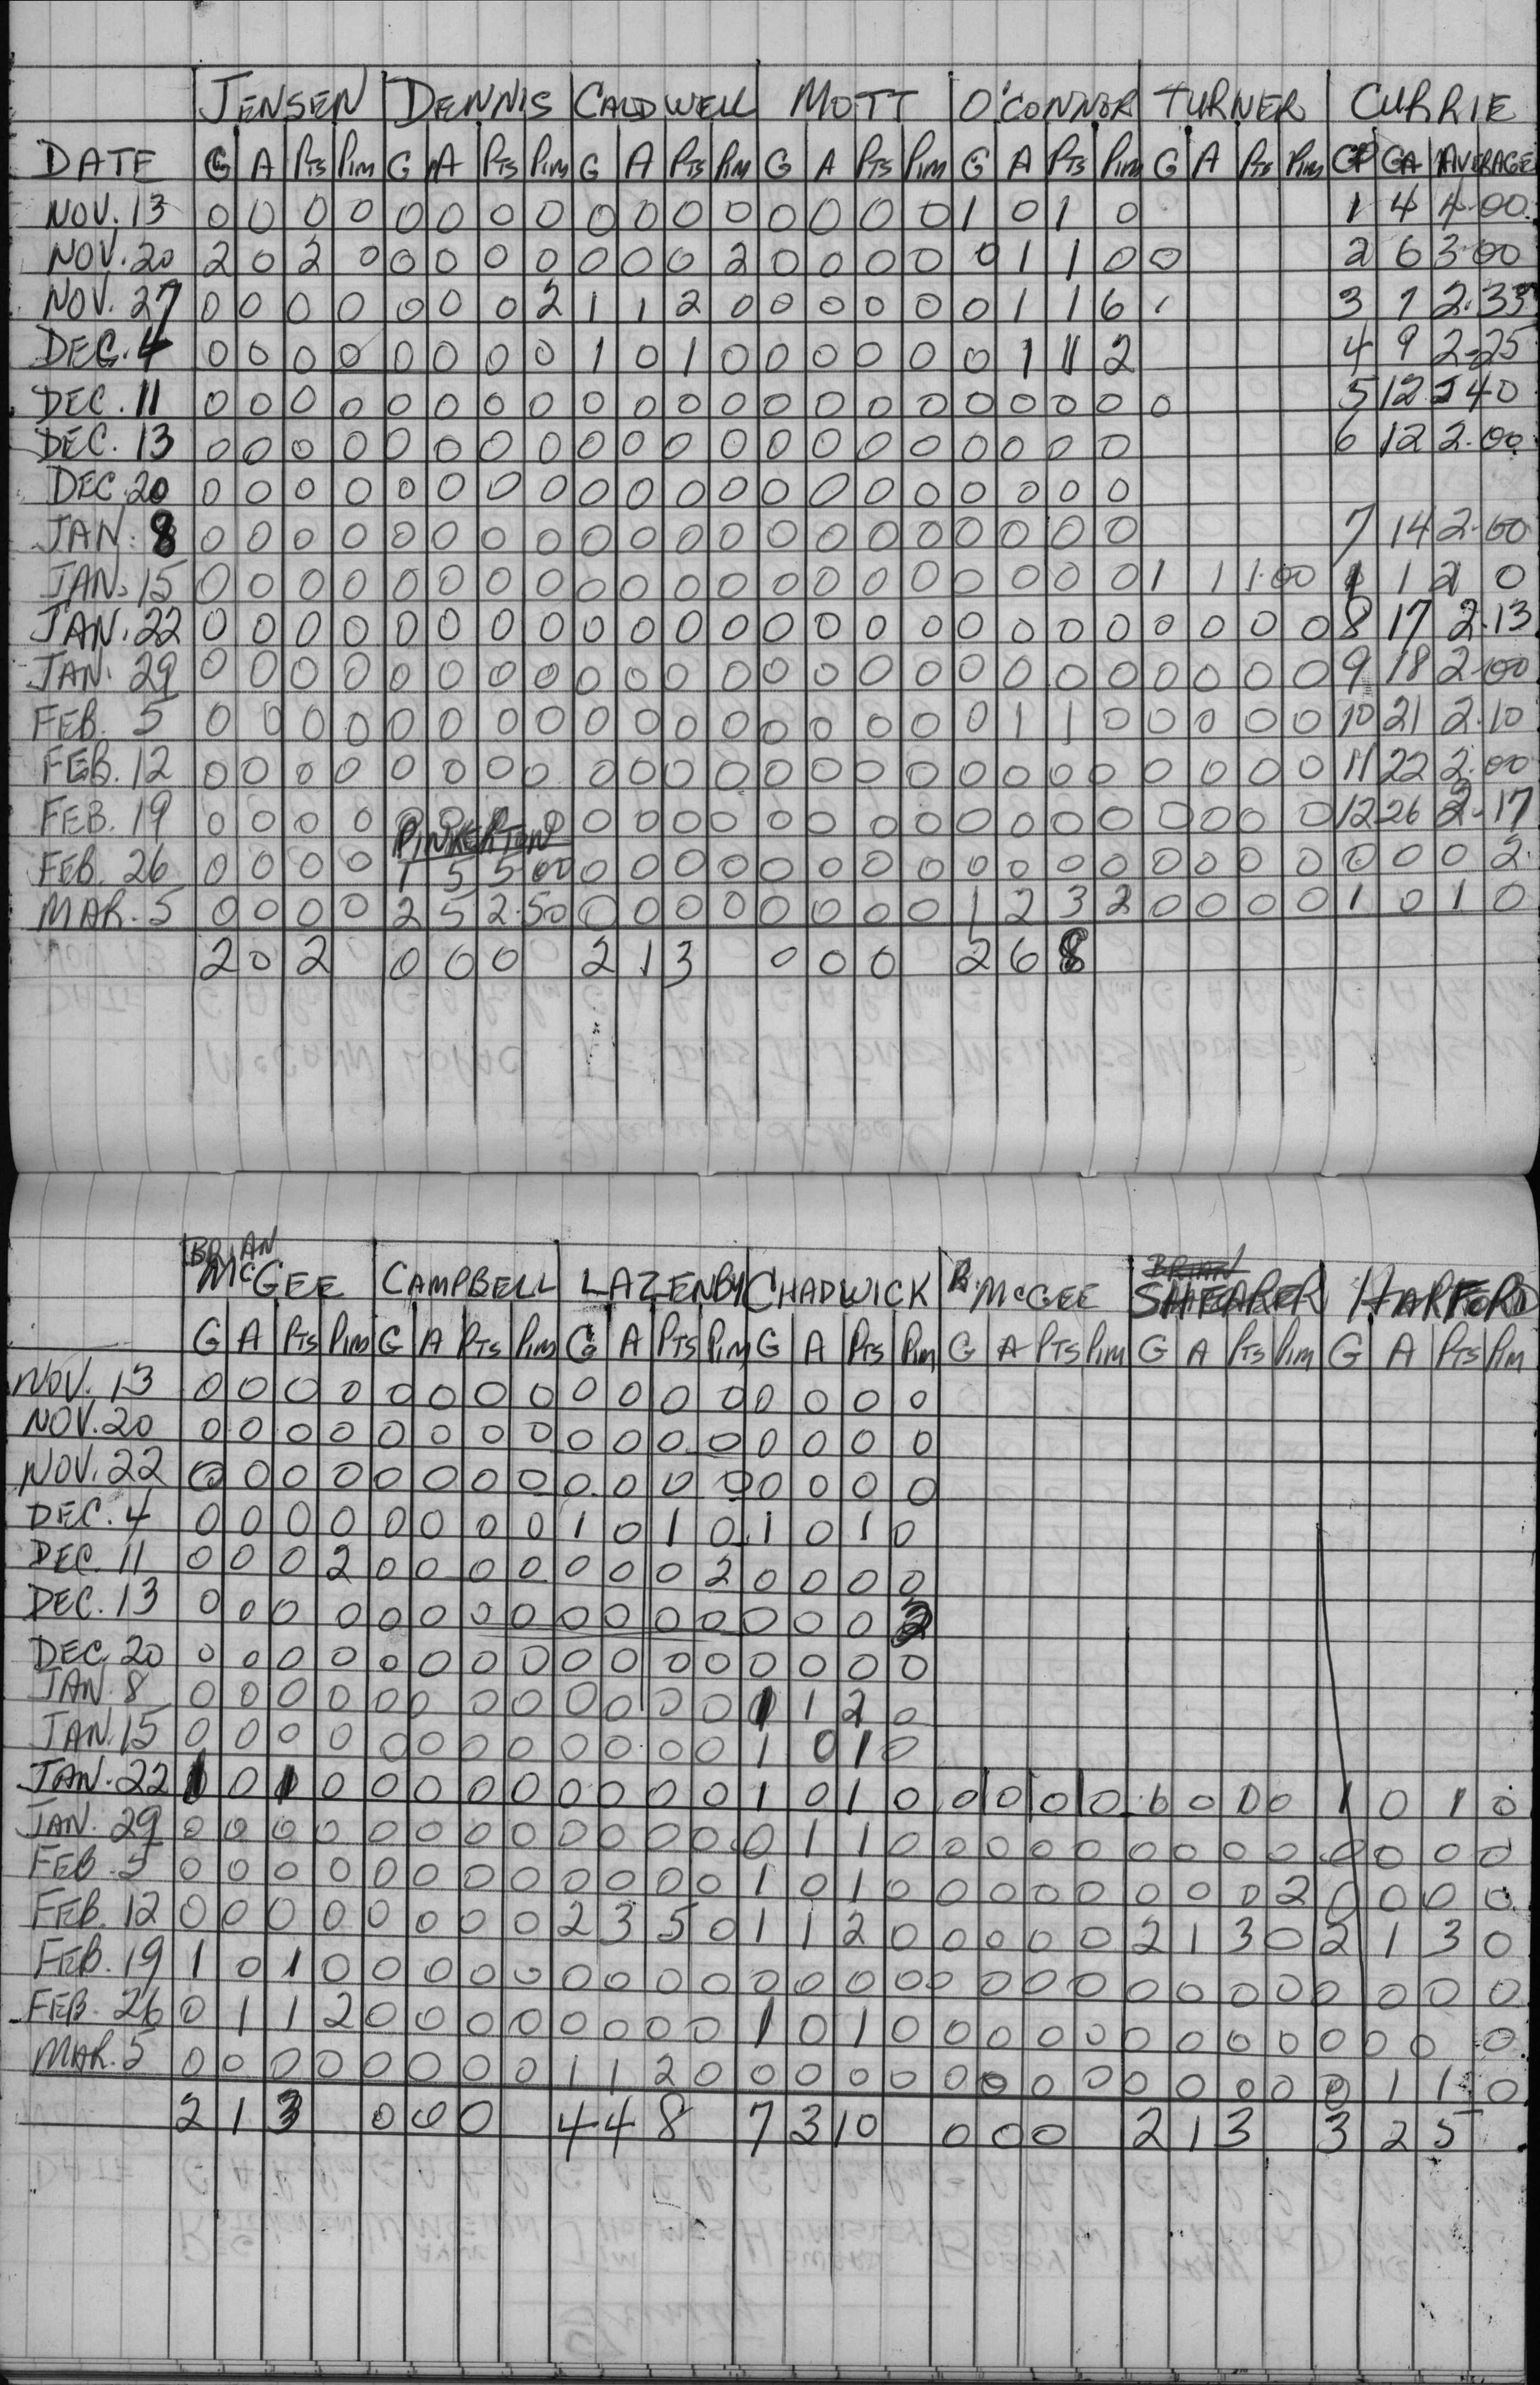 JENSEN DENNIS CALDWELL MOTT O'CONNOR TURNER CURRIE
DATE G A Pts Pim G A Pts Pim G A Pts Pim G A Pts Pim G A Pts Pim G A Pts Pim GP GA AVERAGE
NOV. 13 0 0 0 0 0 0 0 0 0 0 0 0 0 0 0 0 1 0 1 0 1 4 4.00
NOV. 20 2 0 2 0 0 0 0 0 0 0 0 2 0 0 0 0 0 1 1 0 0 2 6 3.00
NOV. 27 0 0 0 0 0 0 0 2 1 1 2 0 0 0 0 0 0 1 1 6 3 7 2.33
DEC. 4 0 0 0 0 0 0 0 0 1 0 1 0 0 0 0 0 0 1 1 2 4 9 2.25
DEC. 11 0 0 0 0 0 0 0 0 0 0 0 0 0 0 0 0 0 0 0 0 0 5 12 2.40
DEC. 13 0 0 0 0 0 0 0 0 0 0 0 0 0 0 0 0 0 0 0 0 6 12 2.00
DEC. 20 0 0 0 0 0 0 0 0 0 0 0 0 0 0 0 0 0 0 0 0
JAN. 8 0 0 0 0 0 0 0 0 0 0 0 0 0 0 0 0 0 0 0 0 7 14 2.00
JAN. 15 0 0 0 0 0 0 0 0 0 0 0 0 0 0 0 0 0 0 0 0 1 1 1.00 1 1 2 0
JAN. 22 0 0 0 0 0 0 0 0 0 0 0 0 0 0 0 0 0 0 0 0 0 0 0 0 8 17 2.13
JAN. 29 0 0 0 0 0 0 0 0 0 0 0 0 0 0 0 0 0 0 0 0 0 0 0 0 9 18 2.00
FEB. 5 0 0 0 0 0 0 0 0 0 0 0 0 0 0 0 0 0 1 1 0 0 0 0 0 10 21 2.10
FEB. 12 0 0 0 0 0 0 0 0 0 0 0 0 0 0 0 0 0 0 0 0 0 0 0 0 11 22 2.00
FEB. 19 0 0 0 0 0 0 0 0 0 0 0 0 0 0 0 0 0 0 0 0 0 0 0 0 12 26 2.17
PINKERTON
FEB. 26 0 0 0 0 1 5 5.00 0 0 0 0 0 0 0 0 0 0 0 0 0 0 0 0 0 0 0 2.
MAR. 5 0 0 0 0 2 5 2.50 0 0 0 0 0 0 0 0 1 2 3 2 0 0 0 0 1 0 1 0
2 0 2 0 0 0 2 1 3 0 0 0 2 6 8
BRIAN BRIAN
McGEE CAMPBELL LAZENBY CHADWICK R. McGEE SHEARER HARFORD
G A Pts Pim G A Pts Pim G A Pts Pim G A Pts Pim G A Pts Pim G A Pts Pim G A Pts Pim
NOV. 13 0 0 0 0 0 0 0 0 0 0 0 0 0 0 0 0
NOV. 20 0 0 0 0 0 0 0 0 0 0 0 0 0 0 0 0
NOV. 22 0 0 0 0 0 0 0 0 0 0 0 0 0 0 0 0
DEC. 4 0 0 0 0 0 0 0 0 1 0 1 0 1 0 1 0
DEC. 11 0 0 0 2 0 0 0 0 0 0 0 2 0 0 0 0
DEC. 13 0 0 0 0 0 0 0 0 0 0 0 0 0 0 0 2
DEC. 20 0 0 0 0 0 0 0 0 0 0 0 0 0 0 0 0
JAN. 8 0 0 0 0 0 0 0 0 0 0 0 0 1 1 2 0
JAN. 15 0 0 0 0 0 0 0 0 0 0 0 0 1 0 1 0
JAN. 22 1 0 1 0 0 0 0 0 0 0 0 0 1 0 1 0 0 0 0 0 0 0 0 0 1 0 1 0
JAN. 29 0 0 0 0 0 0 0 0 0 0 0 0 0 1 1 0 0 0 0 0 0 0 0 0 0 0 0 0
FEB. 5 0 0 0 0 0 0 0 0 0 0 0 0 1 0 1 0 0 0 0 0 0 0 0 2 0 0 0 0
FEB. 12 0 0 0 0 0 0 0 0 2 3 5 0 1 1 2 0 0 0 0 0 2 1 3 0 2 1 3 0
FEB. 19 1 0 1 0 0 0 0 0 0 0 0 0 0 0 0 0 0 0 0 0 0 0 0 0 0 0 0 0
FEB. 26 0 1 1 2 0 0 0 0 0 0 0 0 1 0 1 0 0 0 0 0 0 0 0 0 0 0 0 0
MAR. 5 0 0 0 0 0 0 0 0 1 1 2 0 0 0 0 0 0 0 0 0 0 0 0 0 0 1 1 0
2 1 3 0 0 0 4 4 8 7 3 10 0 0 0 2 1 3 3 2 5